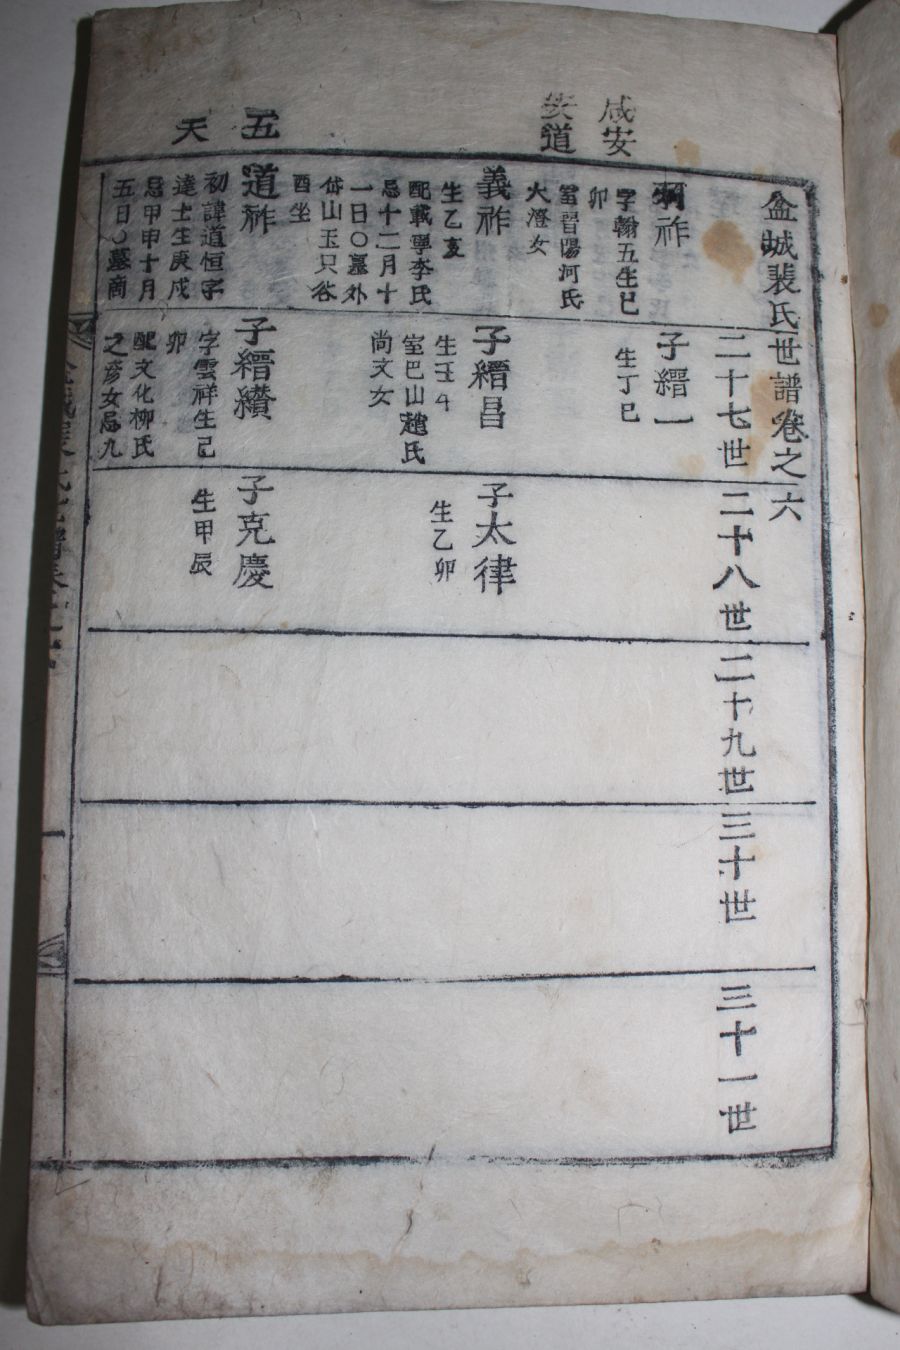 咸安
道
五
天
盆城裴氏世譜卷之六
二十七世
二十八世
二十九世
三十世
三十一世
祚
字翰五生巳
卯
習陽河氏
火澄女
子縉一
生丁巳
義祚
生乙亥
配載寧李氏
忌十二月十
一日〇墓外
岱山玉只谷
酉坐
子縉昌
生壬午
室巴山趙氏
尚文女
子太律
生乙卯
道祚
初諱道恒字
達士生庚戌
忌甲申十月
五日〇墓商
子縉纉
字雲祥生己
卯
配文化柳氏
之彦女忌九
子克慶
生甲辰